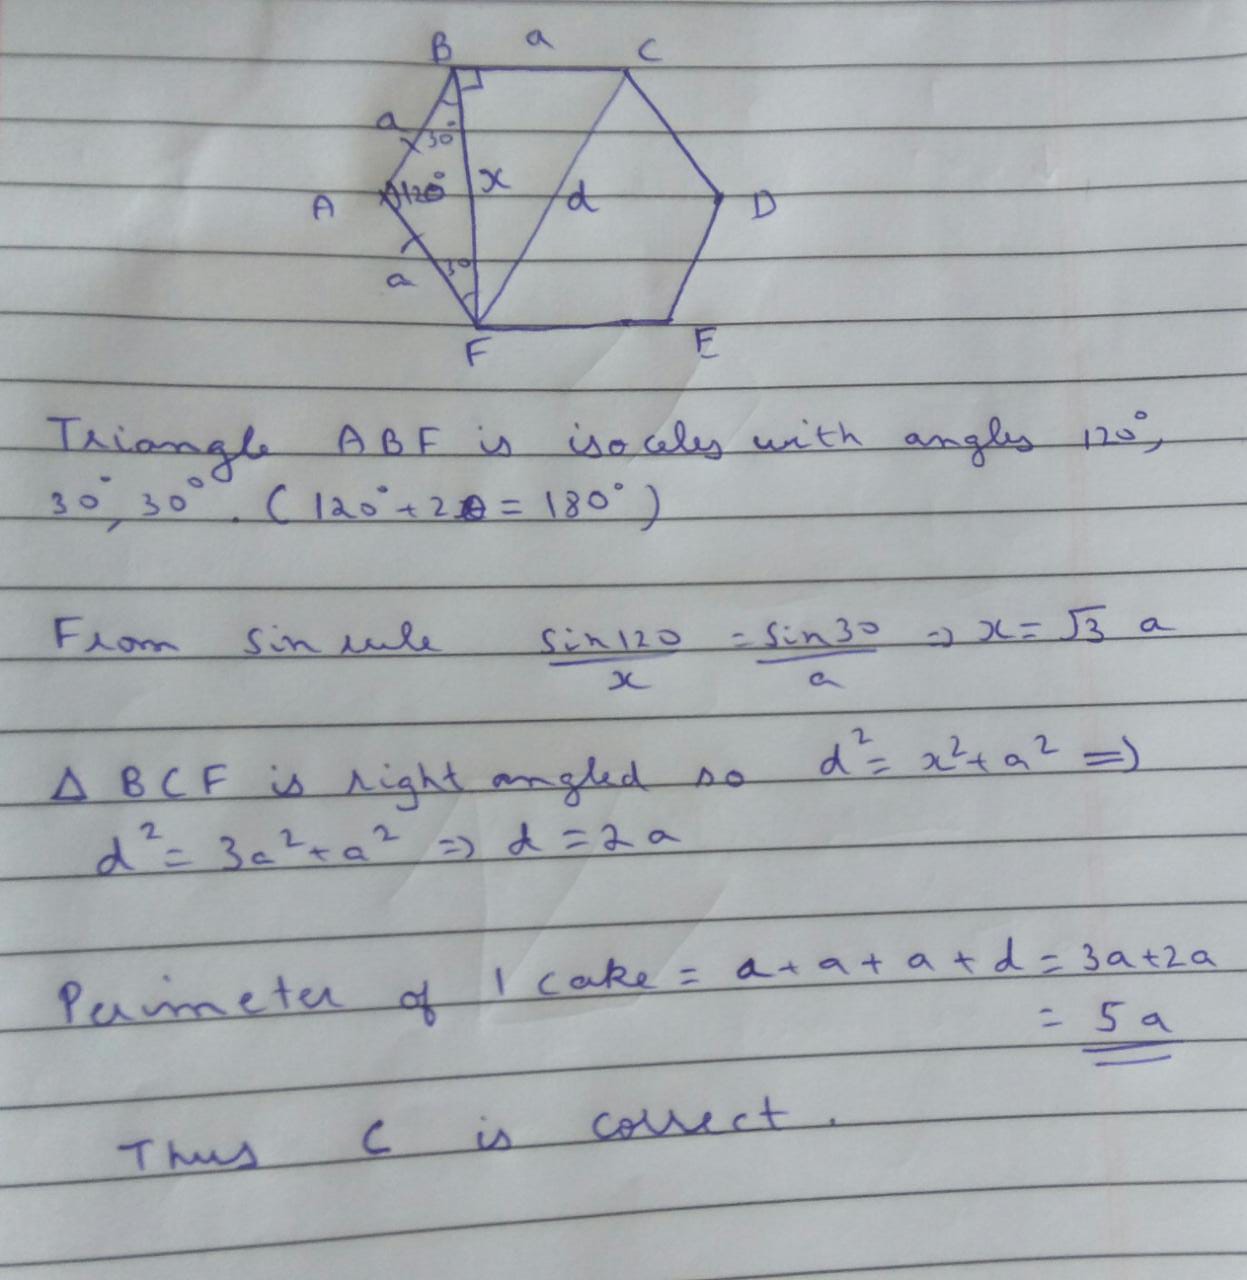 B a C
a
30°
A 120° x d D
a 30
F E
Triangle ABF is isoceles with angles 120°,
30°, 30°. (120° + 2θ = 180°)
From sin rule sin120/x = sin30/a => x = √3 a
Δ BCF is right angled so d² = x² + a² =>
d² = 3a² + a² => d = 2a
Perimeter of 1 cake = a + a + a + d = 3a + 2a
= 5a
Thus C is correct.